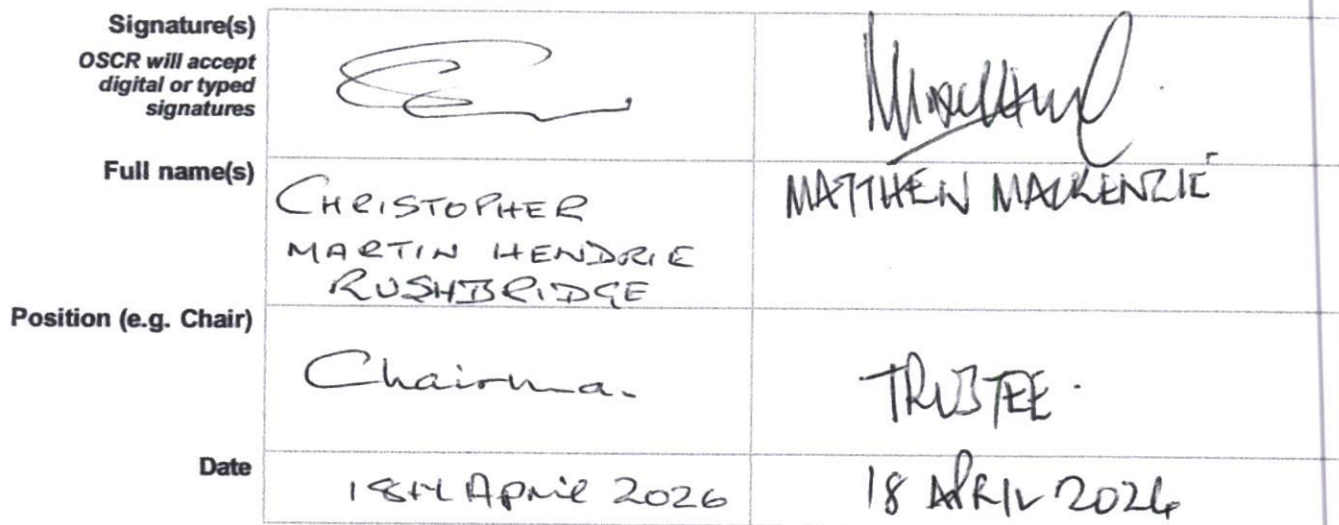 Signature(s)
OSCR will accept
digital or typed
signatures
Full name(s)
CHRISTOPHER
MARTIN HENDRIE
RUSHBRIDGE
MATTHEW MACKENZIE
Position (e.g. Chair)
Chairma.
TRUSTEE.
Date
18th April 2026
18 APRIL 2026